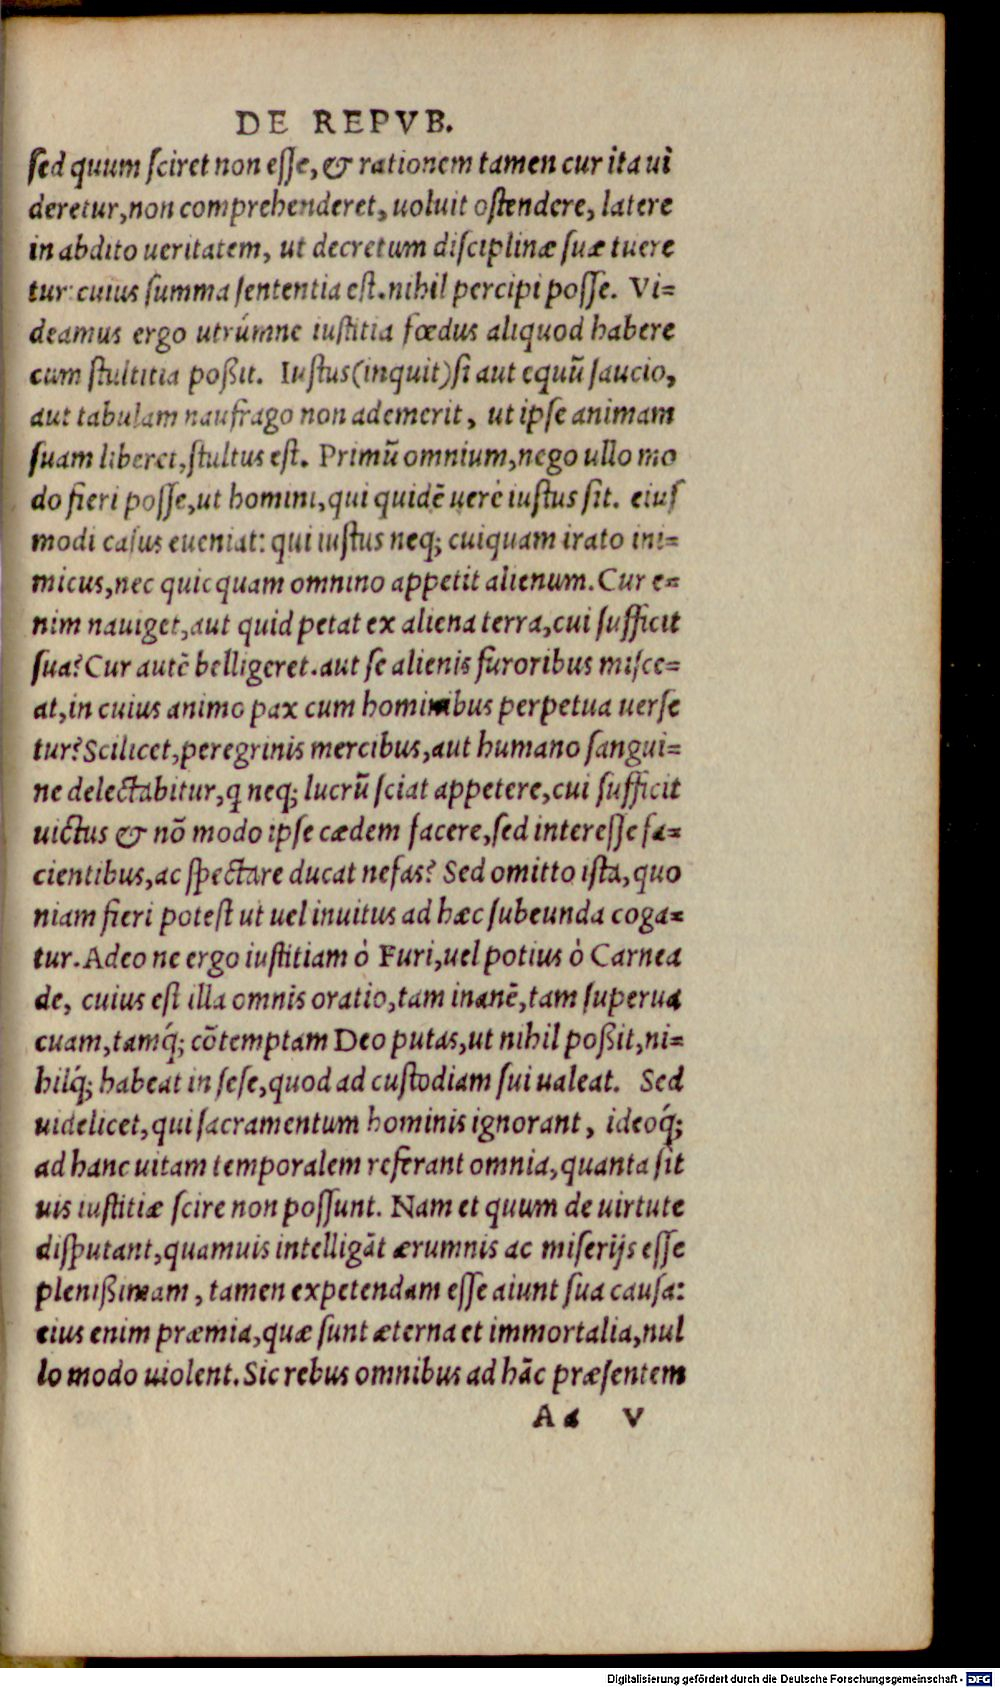 DE REPVB.
ſed quum ſciret non eſſe, & rationem tamen cur ita ui
deretur, non comprehenderet, uoluit oſtendere, latere
in abdito ueritatem, ut decretum diſciplinæ ſuæ tuere
tur: cuius ſumma ſententia eſt. nihil percipi poſſe. Vi=
deamus ergo utrúmne iuſtitia fœdus aliquod habere
cum ſtultitia poßit. Iuſtus (inquit) ſi aut equũ ſaucio,
aut tabulam naufrago non ademerit, ut ipſe animam
ſuam liberet, ſtultus eſt. Primũ omnium, nego ullo mo
do fieri poſſe, ut homini, qui quidẽ uerè iuſtus ſit. eiuſ
modi caſus eueniat: qui iuſtus neq; cuiquam irato ini=
micus, nec quicquam omnino appetit alienum. Cur e=
nim nauiget, aut quid petat ex aliena terra, cui ſufficit
ſua? Cur autẽ belligeret. aut ſe alienis furoribus miſce=
at, in cuius animo pax cum hominibus perpetua uerſe
tur? Scilicet, peregrinis mercibus, aut humano ſangui=
ne delectabitur, q neq; lucrũ ſciat appetere, cui ſufficit
uictus & nõ modo ipſe cædem facere, ſed intereſſe fa=
cientibus, ac ſpectare ducat nefas? Sed omitto iſta, quo
niam fieri poteſt ut uel inuitus ad hæc ſubeunda coga=
tur. Adeo ne ergo iuſtitiam ò Furi, uel potius ò Carnea
de, cuius eſt illa omnis oratio, tam inanẽ, tam ſuperua
cuam, tamq́; cõtemptam Deo putas, ut nihil poßit, ni=
hilq́; habeat in ſeſe, quod ad cuſtodiam ſui ualeat. Sed
uidelicet, qui ſacramentum hominis ignorant, ideoq́;
ad hanc uitam temporalem referant omnia, quanta ſit
uis iuſtitiæ ſcire non poſſunt. Nam et quum de uirtute
diſputant, quamuis intelligãt ærumnis ac miſerijs eſſe
plenißimam, tamen expetendam eſſe aiunt ſua cauſa:
eius enim præmia, quæ ſunt æterna et immortalia, nul
lo modo uiolent. Sic rebus omnibus ad hãc præſentem
Aa V
Digitalisierung gefördert durch die Deutsche Forschungsgemeinschaft - DFG